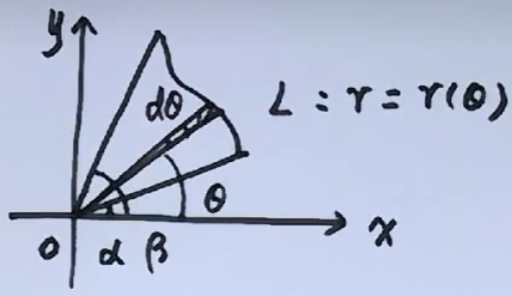 y
dθ
L : r = r(θ)
θ
x
0 α β